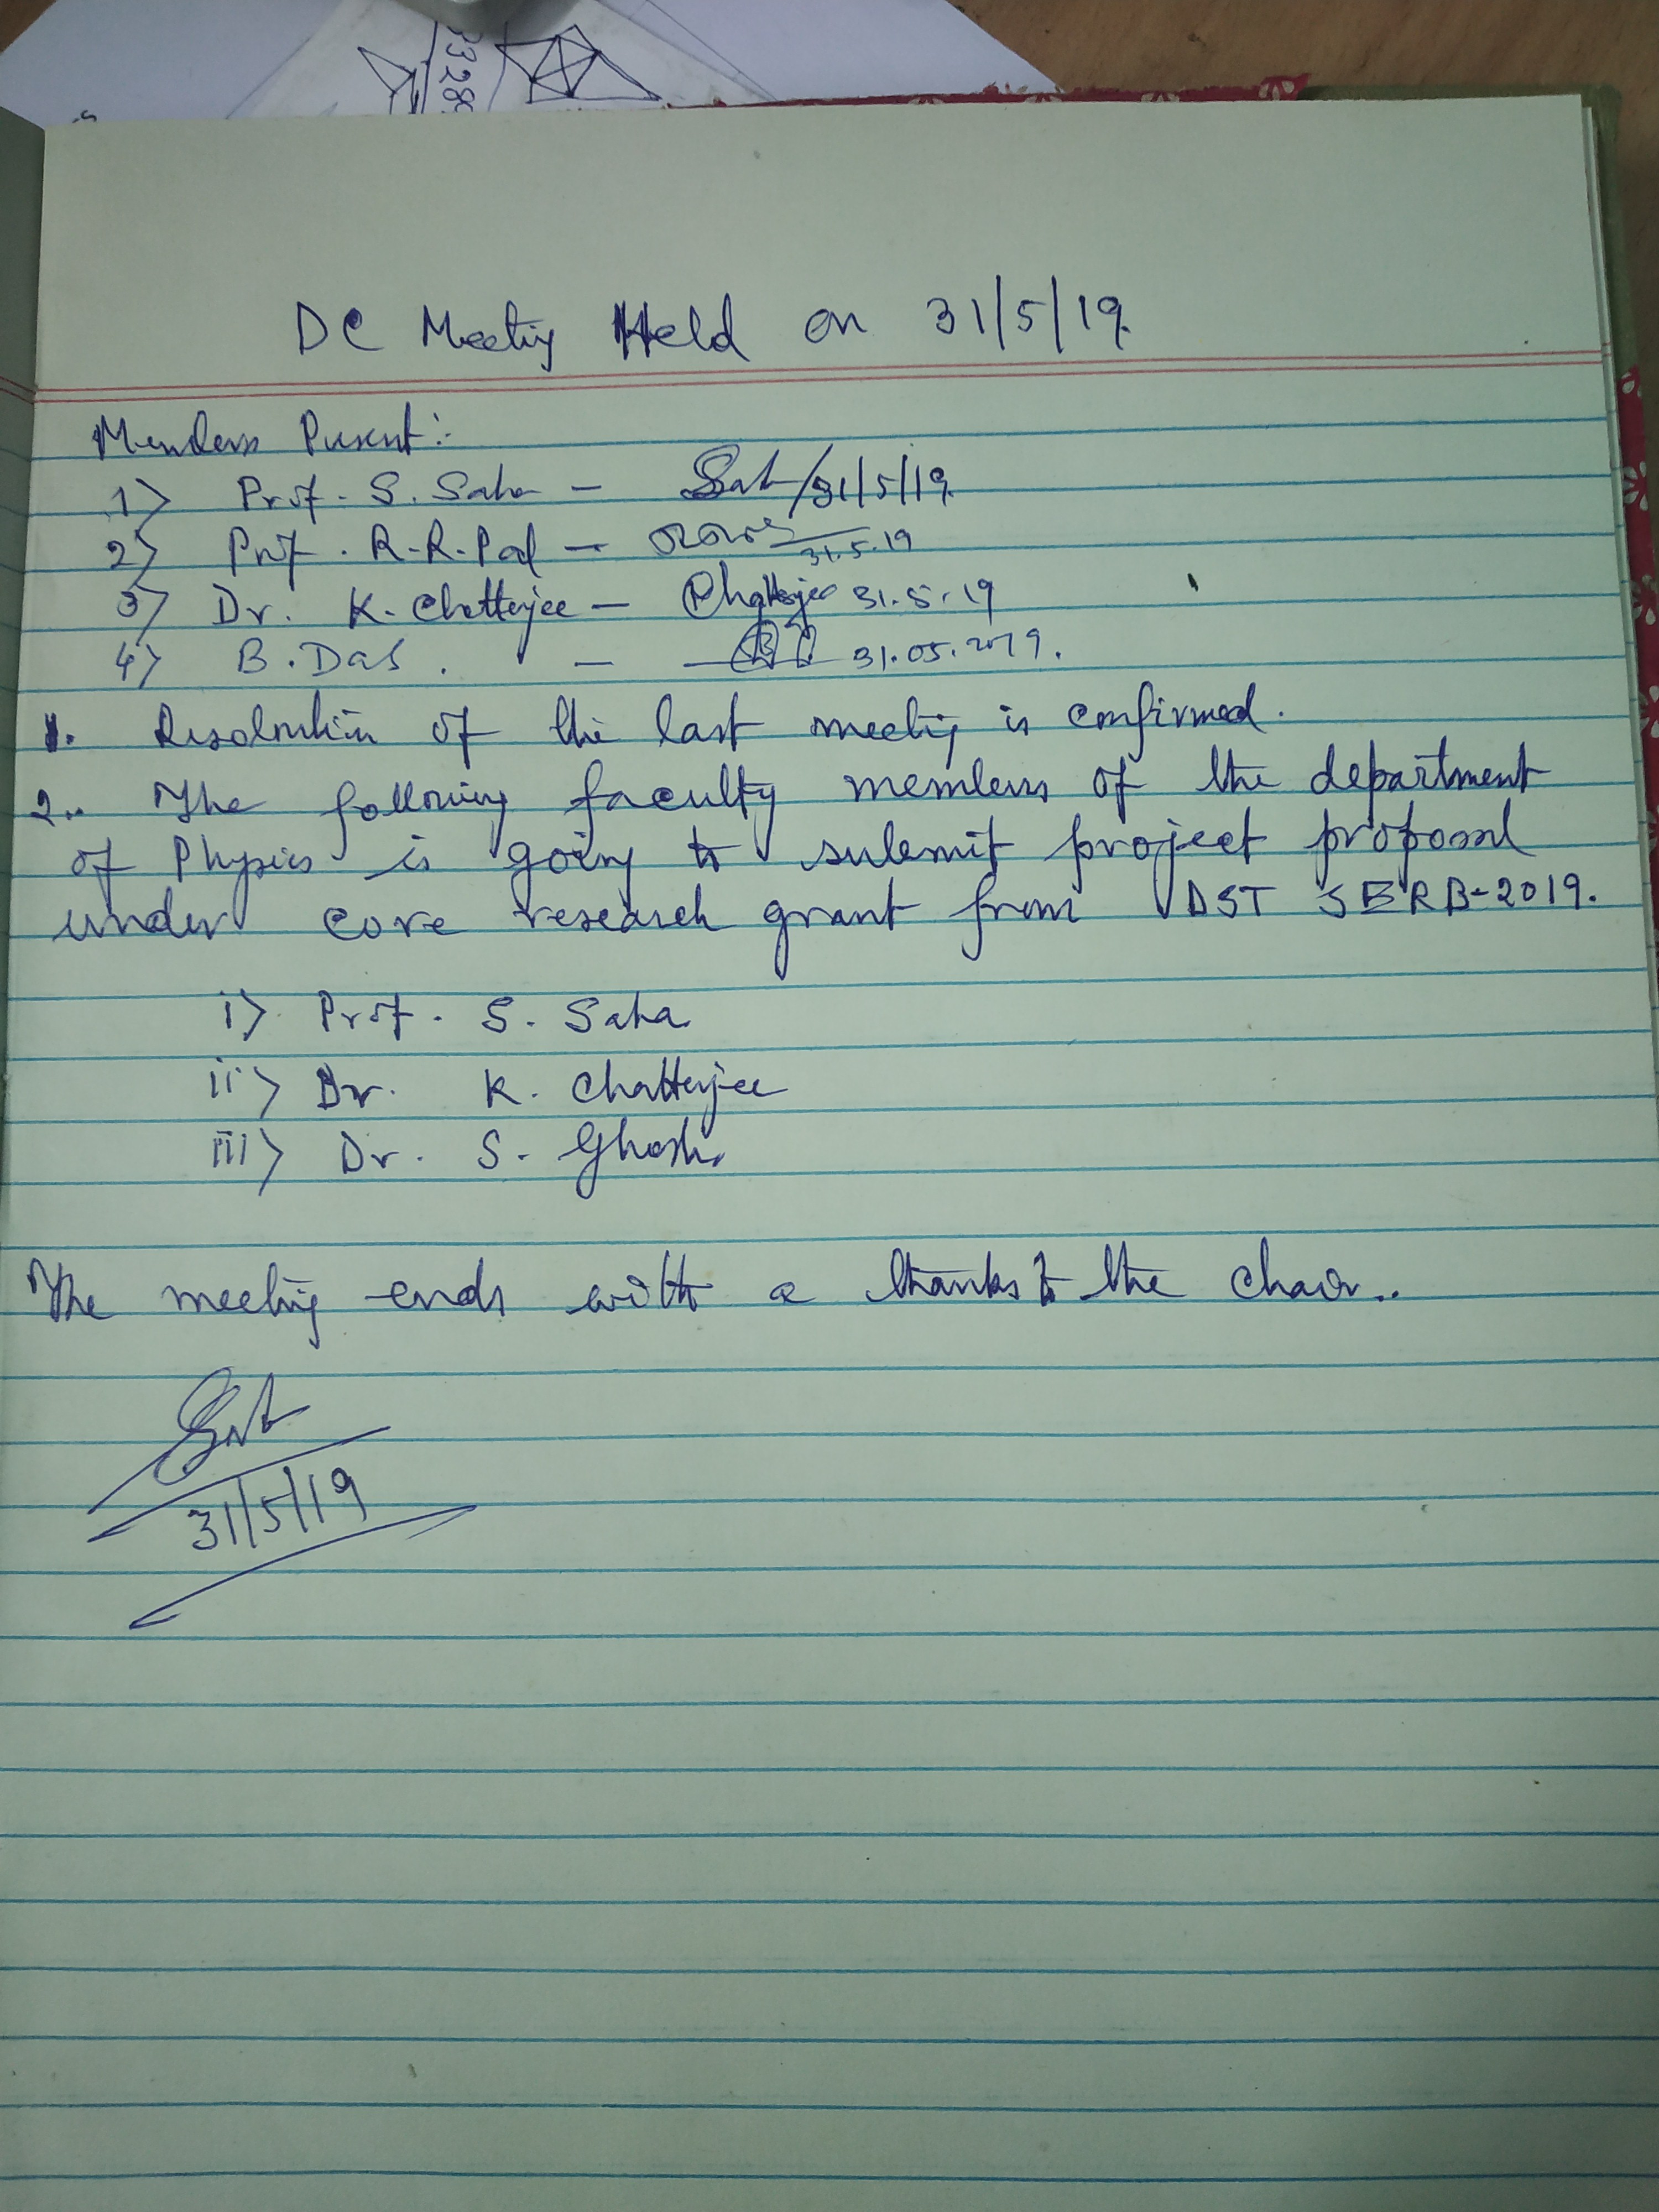 3328
DC Meeting Held on 31/5/19.
Members Present:-
1) Prof. S. Saha - Sah/31/5/19
2) Prof. R.R. Pal - 31.5.19
3) Dr. K. Chatterjee - Chatterjee 31.5.19
4) B. Das. - 31.05.2019.
1. Resolution of the last meeting is confirmed.
2. The following faculty members of the department
of Physics is going to submit project proposal
under core research grant from DST SERB-2019.
i) Prof. S. Saha
ii) Dr. K. Chatterjee
iii) Dr. S. Ghosh.
The meeting ends with a thanks to the chair..
31/5/19